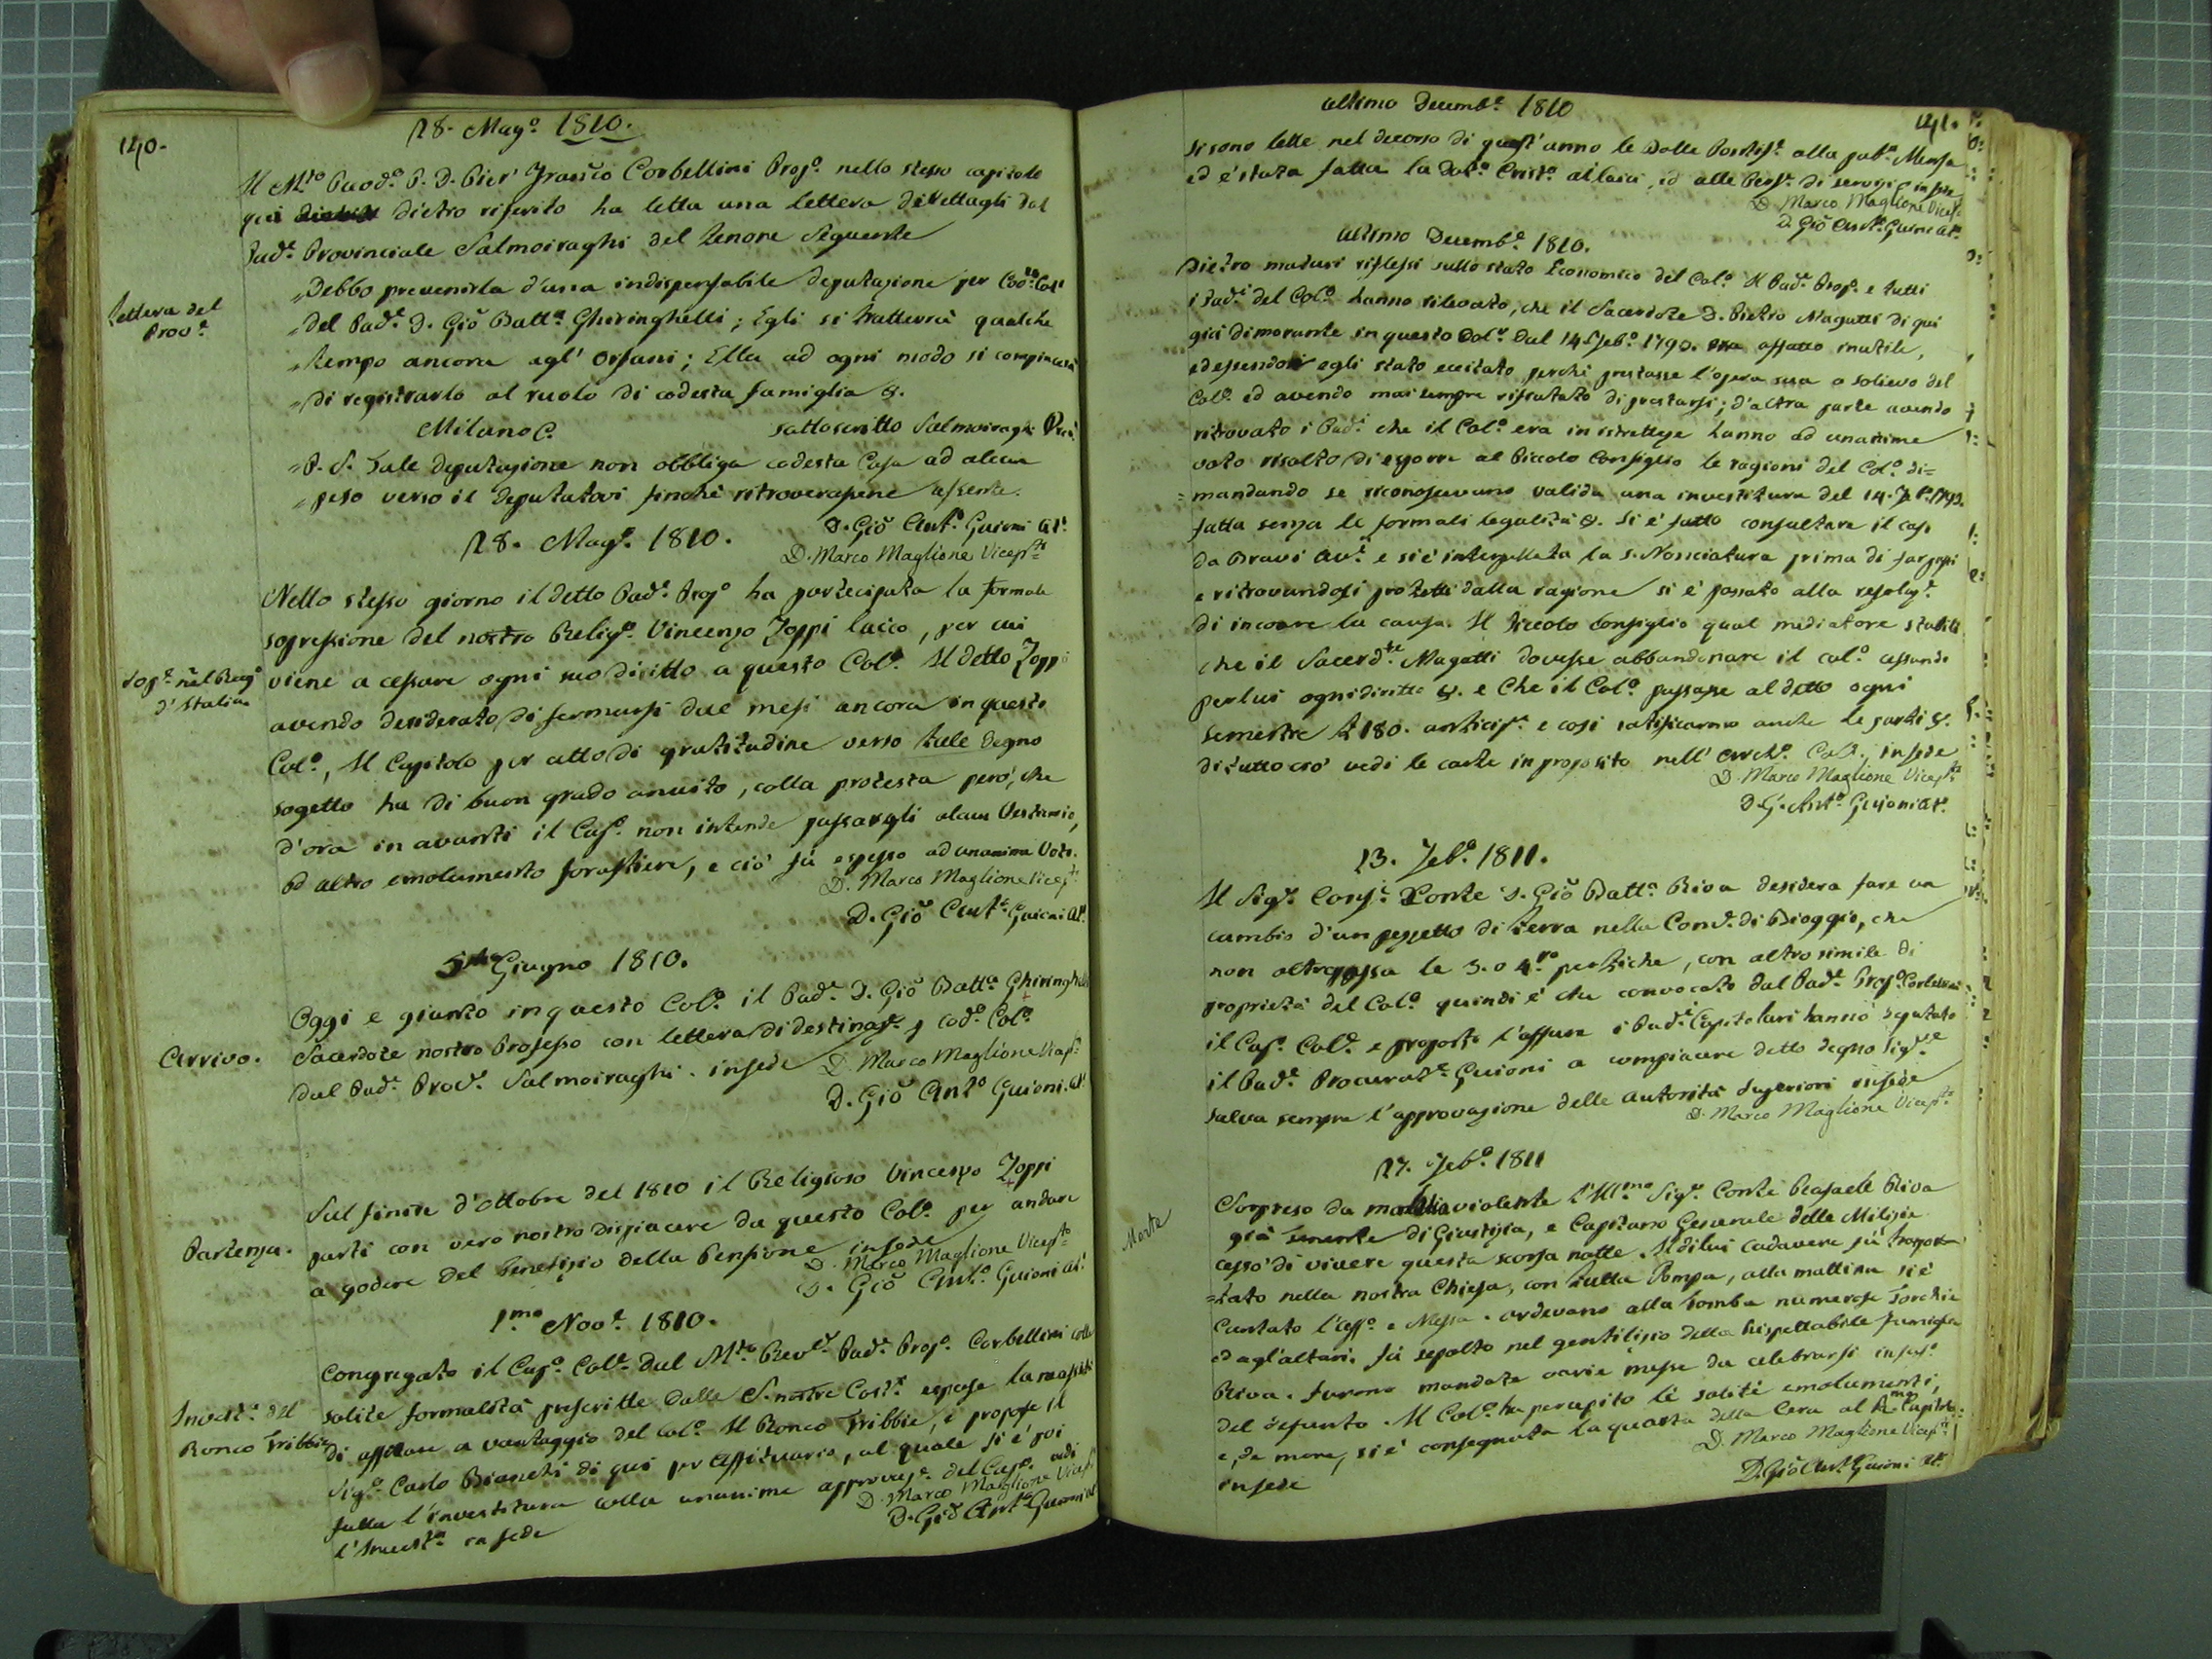 140.
28. Mag.º 1810.
Il M.to Rev.do P. D. Pier' Fran.co Corbellini Prop.º nello stesso capitolo
qui dietro riferito ha letta una lettera
Pad.e Provinciale Salmoiraghi del tenore seguente
Lettera del
Prov.e
"Debbo prevenirla d'una indispensabile deputazione per
"del Pad.e D. Gio Batt.a Ghiringhelli; Egli si tratterrà qualche
"tempo ancora agl' Orfani; Ella ad ogni modo si compiacerà
"di registrarlo al ruolo di codesta famiglia &.
Milano &. sottoscritto Salmoiraghi Prov.
"P. S. Tale deputazione non obbliga codesta Casa ad alcun
"peso verso il deputatovi finchè ritroverassene assente.
D. Gio Ant.º Guioni At.º
28. Mag.º 1810.
D. Marco Maglione Vicep.to
Nello stesso giorno il detto Pad.e Prop.º ha partecipata la formale
sopressione del nostro Relig.º Vincenzo Zoppi laico, per cui
Sop.e nel Reg.º
d'Italia
viene a cessare ogni suo diritto a questo Col.º Il detto Zoppi
avendo desiderato di fermarsi due mesi ancora in questo
Col.º, Il Capitolo per atto di gratitudine verso tale degno
sogetto ha di buon grado anuito, colla protesta però, che
d'ora in avanti il Cap.º non intende passargli alcun Vestiario,
od altro emolumento forastiere, e ciò fù espresso ad unanimi Voti.
D. Marco Maglione Vicep.to
D. Gio Ant.º Guioni At.º
5.to Giugno 1810.
Oggi e giunto in questo Col.º il Pad.e D. Gio Batt.a Ghiringhelli
Arrivo.
Sacerdote nostro Professo con lettera di destinaz.e p cod.º Col.º
dal Pad.e Prov.e Salmoiraghi. in fede D. Marco Maglione Vicep.to
D. Gio Ant.º Guioni. At.
Sul finire d'ottobre del 1810 il Religioso Vincenzo Zoppi
Partenza.
partì con vero nostro dispiacere da questo Col.º per andare
a godere del benefizio della Pensione in fede
D. Marco Maglione Vicep.to
D. Gio Ant.º Guioni At.º
1.mo Nov.e 1810.
Congregato il Cap.º Col.e dal M.to Rev.do Pad.e Prop.º Corbellini colle
solite formalità prescritte dalle S. nostre Cost.i espose la necessità
Invest.a del
Ronco Tribbie
di affittare a vantaggio del Col.º Il Ronco Tribbie, e propose il
Sig.r Carlo Bianchi di qui per affittuario, al quale si è poi
fatta l'investitura colla unanime approvaz.e del Cap.º vedi
l'Invest.a in fede
D. Marco Maglione Vicep.to
D. Gio Ant.º Guioni At.
141.
ultimo Decemb.e 1810
Si sono lette nel decorso di quest'anno le Bolle Pontif.e alla pub.a Mensa
ed è stata fatta la Dot.a Crist.a ai laici, ed alle Pers.e di servizio in fede
D. Marco Maglione Vicep.
D. Gio Ant.º Guioni At.º
ultimo Decemb.e 1810.
Dietro maturi riflessi sullo stato Economico del Col.º Il Pad.e Prop.º e tutti
i Pad.i del Col.º hanno rilevato, che il Sacerdote D. Pietro Magatti di qui
già dimorante in questo Col.º dal 14 Feb.º 1793. era affatto inutile,
ed essendo egli stato eccitato perchè prestasse l'opera sua a solievo del
Col.º ed avendo mai sempre rifiutato di prestarsi; d'altra parte avendo
ritrovato i Pad.i che il Col.º era in istrettezze hanno ad unanime
voto risolto di esporre al Piccolo Consiglio le ragioni del Col.º di=
=mandando se riconoscevano valida una investitura del 14. F.º 1793.
fatta senza le formali legalità &. Si è fatto consultare il caso
da bravi Av.i e si è interpellata la S. Nonciatura prima di far passi
e ritrovandosi protetti dalla ragione si è passato alla resoluz.e
di incoare la causa. Il Piccolo Consiglio qual mediatore stabilì
che il Sacerd.te Magatti dovesse abbandonare il Col.º cessando
per lui ogni diritto &. e che il Col.º passasse al detto ogni
semestre L 180. anticip.e e così ratificarono anche le parti &.
di tutto ciò vedi le carte in proposito nell' Arch.º Col.e, in fede
D. Marco Maglione Vicep.to
D. G. Ant.º Guioni At.º
13. Feb.º 1811.
Il Sig.r Cons.e Conte D. Gio Batt.a Riva desidera fare un
cambio d'un pezzetto di terra nella Com.e di Bioggio, che
non oltrepassa le 3. o 4.ro pertiche, con altro simile di
proprietà del Col.º quindi è che convocato dal Pad.e Prop.º Corbellini
il Cap.º Col.e e proposto l'affare i Pad.i Capitolari hanno deputato
il Pad.e Procurat.e Guioni a compiacere detto degno Sig.re
salva sempre l'approvazione delle autorità superiori in fede
D. Marco Maglione Vicep.to
27. Feb.º 1811
Morte
Sorpreso da malattia violente l'Ill.mo Sig.r Conte Rafaele Riva
già Tenente di Giustizia, e Capitano Generale delle Milizie
cessò di vivere questa scorsa notte. Il di lui cadavere fù traspor=
=tato nella nostra Chiesa, con tutta Pompa, alla mattina si è
Cantato l'Uff.º e Messa. ardevano alla tomba numerose Torchie
ed agl'altari. Fù sepolto nel gentilizio della rispettabile famiglia
Riva. Furono mandate varie messe da celebrarsi in suf.º
del defunto. Il Col.º ha percepito li soliti emolumenti,
e, de more, si è consegnata la quarta della Cera al R.mo Capitolo.
in fede
D. Marco Maglione Vicep.to
D. Gio Ant.º Guioni At.